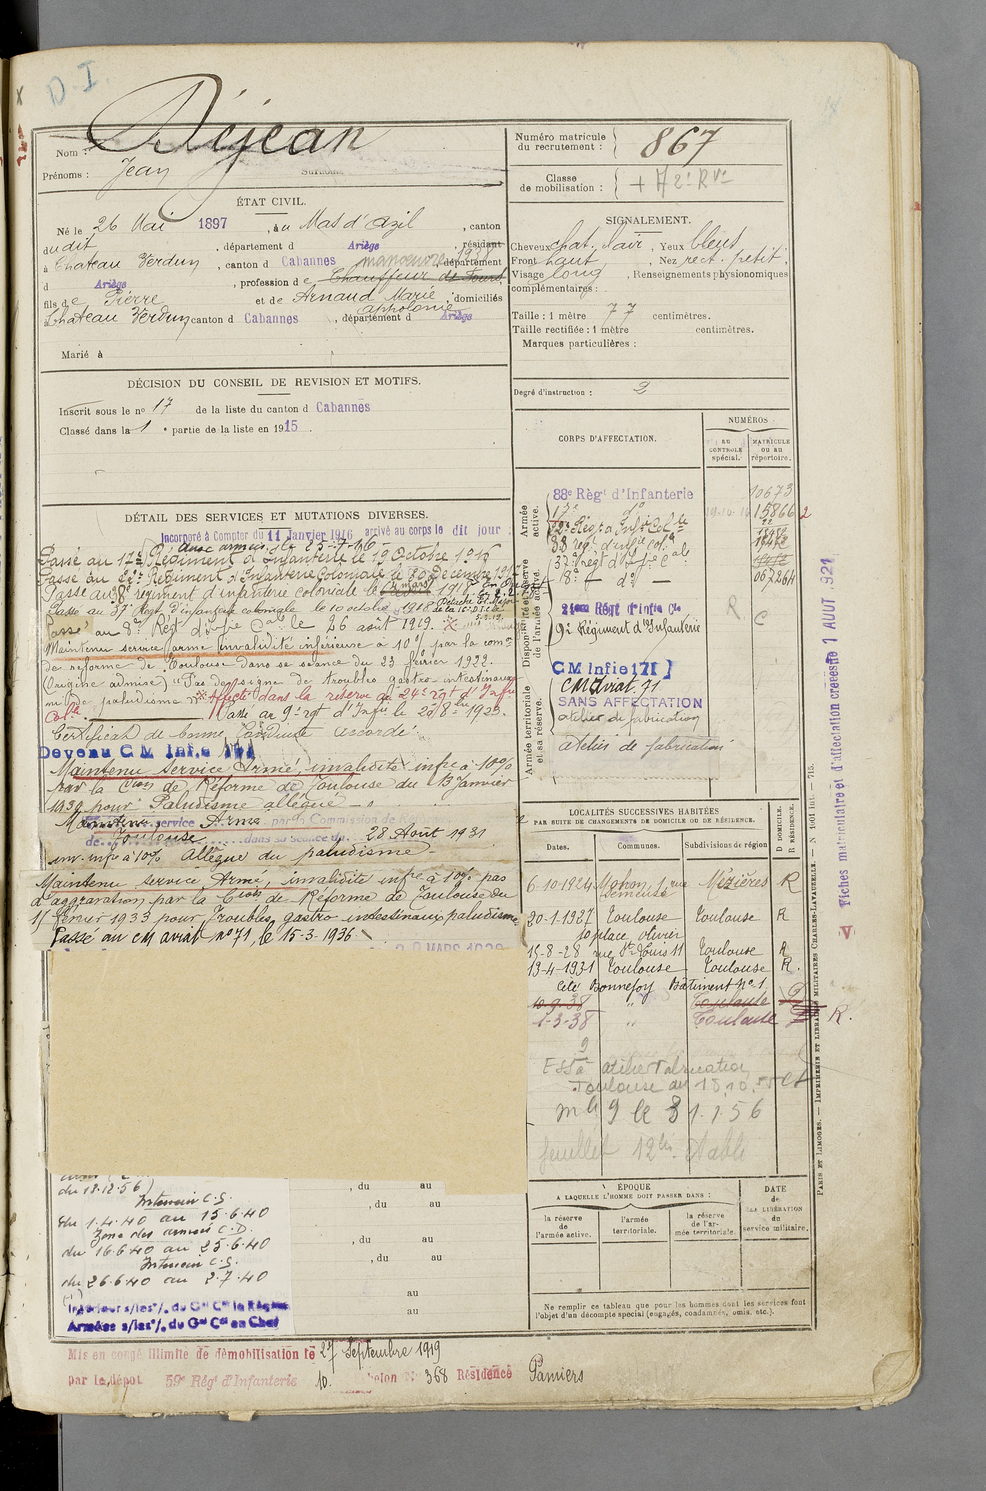 D.I.
Déjean
Nom :
Prénoms : Jean Surnoms
Numéro matricule du recrutement : 867
Classe de mobilisation :
ÉTAT CIVIL.
Né le 26 Mai 1897, à u Mas d'Azil, canton
du dit, département d Ariège, résidant
à Chateau Verdun, canton d Cabannes manœuvre 1938 département
d Ariège, profession de Chauffeur de Fours
fils de Pierre et de Arnaud Marie appolonie, domiciliés
à Chateau Verdun canton d Cabannes, département d Ariège
Marié à
SIGNALEMENT.
Cheveux chat. clair, Yeux bleus
Front haut, Nez rect. petit,
Visage long, Renseignements physionomiques
complémentaires :
Taille : 1 mètre 77 centimètres.
Taille rectifiée : 1 mètre centimètres.
Marques particulières :
Degré d'instruction : 2
DÉCISION DU CONSEIL DE REVISION ET MOTIFS.
Inscrit sous le n° 17 de la liste du canton d Cabannes
Classé dans la 1e partie de la liste en 1915.
DÉTAIL DES SERVICES ET MUTATIONS DIVERSES.
Incorporé à Compter du 11 Janvier 1916 arrivé au corps le dit jour
Passé au 17e Régiment d'Infanterie le 19 Octobre 1916
Passé au 22e Régiment d'Infanterie coloniale le 30 Décembre 1917
Passé au 38e régiment d'infanterie coloniale le
Passé au 37e Régt d'infanterie coloniale le 10 octobre 1918
Passé au 8e Régt d'Infie Cale le 26 août 1919.
Maintenu service armé invalidité inférieure à 10% par la comon
de réforme de Toulouse dans sa séance du 23 février 1922.
(Origine admise) "Pas de signe de troubles gastro intestinaux
ni de paludisme" Affecté dans la réserve au 24e rgt d'Infie
Colle. Passé au 9e rgt d'Infie le 20 8bre 1923.
Certificat de bonne conduite accordé.
Devenu C M Infie 171
Maintenu Service Armé, invalidité infre à 10%
par la Cion de Réforme de Toulouse du 13 Janvier
1930 pour "Paludisme allégué"
Maintenu service Armé par la Commission de Réforme
de Toulouse dans sa séance du 28 Août 1931
inv. infre à 10% Allègue du paludisme
Maintenu service Armé, invalidité infre à 10% pas
d'aggravation par la Cion de Réforme de Toulouse du
17 février 1933 pour Troubles gastro intestinaux paludisme
Passé au CM aviat n° 71, le 15-3-1936
du 18.12.56)
Intérieur C.S.
du 1.4.40 au 15.6.40
Zone des armées C.D.
du 16.6.40 au 25.6.40
Intérieur C.S.
du 26.6.40 au 2.7.40
Intérieur s/les o/. du Gal Ct la Région
Armées s/les o/. du Gal Ct en Chef
, du au
, du au
, du au
, du au
au
au
Mis en congé illimité de démobilisation le 27 Septembre 1919
par le dépôt 59e Régt d'Infanterie 10. échelon N° 368 Résidence Pamiers
CORPS D'AFFECTATION.
NUMÉROS
AU CONTROLE spécial.
MATRICULE OU AU répertoire.
Armée active.
Disponibilité et réserve de l'armée active.
Armée territoriale et sa réserve.
88e Régt d'Infanterie 10673
17e do 15866
22e Régt d'Infie Colle
38 régt d'infie cole
37e régt d'Infie Cale
18e d° 062264
21eme Régt d'Infie Cle
9e Régiment d'Infanterie
R C
CM Infie 171
CM aviat. 71
SANS AFFECTATION
atelier de fabrication
atelier de fabrication
LOCALITÉS SUCCESSIVES HABITÉES
PAR SUITE DE CHANGEMENTS DE DOMICILE OU DE RÉSIDENCE.
Dates. Communes. Subdivisions de région D DOMICILE. R RÉSIDENCE.
6-10-1924 Mohon, 1 rue Mézières R
20-1-1927 Toulouse Toulouse R
10 place olivier
15-8-28 rue St Louis 11 Toulouse R
13-4-1931 Toulouse Toulouse R.
Cité Bonnefoy Bâtiment N° 1
10-9-38 " Toulouse D
1-3-38 " Toulouse R.
atelier Fabrication
Toulouse du 18.10.55
le 31.1.56
feuillet 12bis établi
ÉPOQUE
A LAQUELLE L'HOMME DOIT PASSER DANS :
la réserve de l'armée active.
l'armée territoriale.
la réserve de l'armée territoriale.
DATE de LA LIBÉRATION du service militaire.
Ne remplir ce tableau que pour les hommes dont les services font
l'objet d'un décompte spécial (engagés, condamnés, omis, etc.).
PARIS ET LIMOGES. — IMPRIMERIE ET LIBRAIRIE MILITAIRES CHARLES-LAVAUZELLE.
Fiches matriculaire et d'affectation créées le 1 AOUT 1921